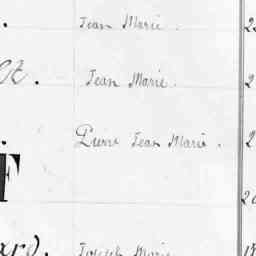 . Jean Marie. 2
t. Jean Marie. 2
. Pierre Jean Marie. 2
F
2
ard. Joseph Marie 19